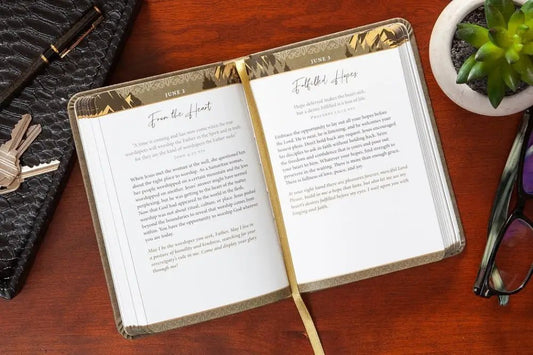 JUNE 2
From the Heart
"A time is coming and has now come when the true
worshipers will worship the Father in the Spirit and in truth,
for they are the kind of worshipers the Father seeks."
JOHN 4:23
When Jesus met the woman at the well, she questioned him
about the right place to worship. As a Samaritan woman,
her people worshipped on a certain mountain and the Jews
worshipped on another. Jesus' answer might have seemed
perplexing, but he was getting to the heart of the matter.
Now that God had appeared to the world at the first,
worship was not about ritual, culture, or place. Jesus went
beyond the boundaries to reveal that worship comes from
within. You have the opportunity to worship God wherever
you are today.
May I be the worshiper you seek, Father. May I live in
a posture of humility and kindness, searching for your
sovereignty's rule in me. Come and display your glory
through me!
JUNE 3
Fulfilled Hopes
Hope deferred makes the heart sick,
but a desire fulfilled is a tree of life.
PROVERBS 13:12
Embrace the opportunity to lay out all your hopes before
the Lord. He is near, he is listening, and he welcomes your
bravest pleas. Don't hold back any request. Jesus encouraged
his disciples to ask in faith without holding back. Have
the freedom and confidence that is yours and pour out
your heart to him. Whatever your hopes, find strength to
persevere in the waiting. There is more than enough grace.
There is fullness of love, peace, and joy.
In your right hand there are pleasures forever, merciful Lord.
Please, build in me a hope that lasts, but also let me see my
heart's desires fulfilled before my eyes. I wait upon you with
longing and faith.